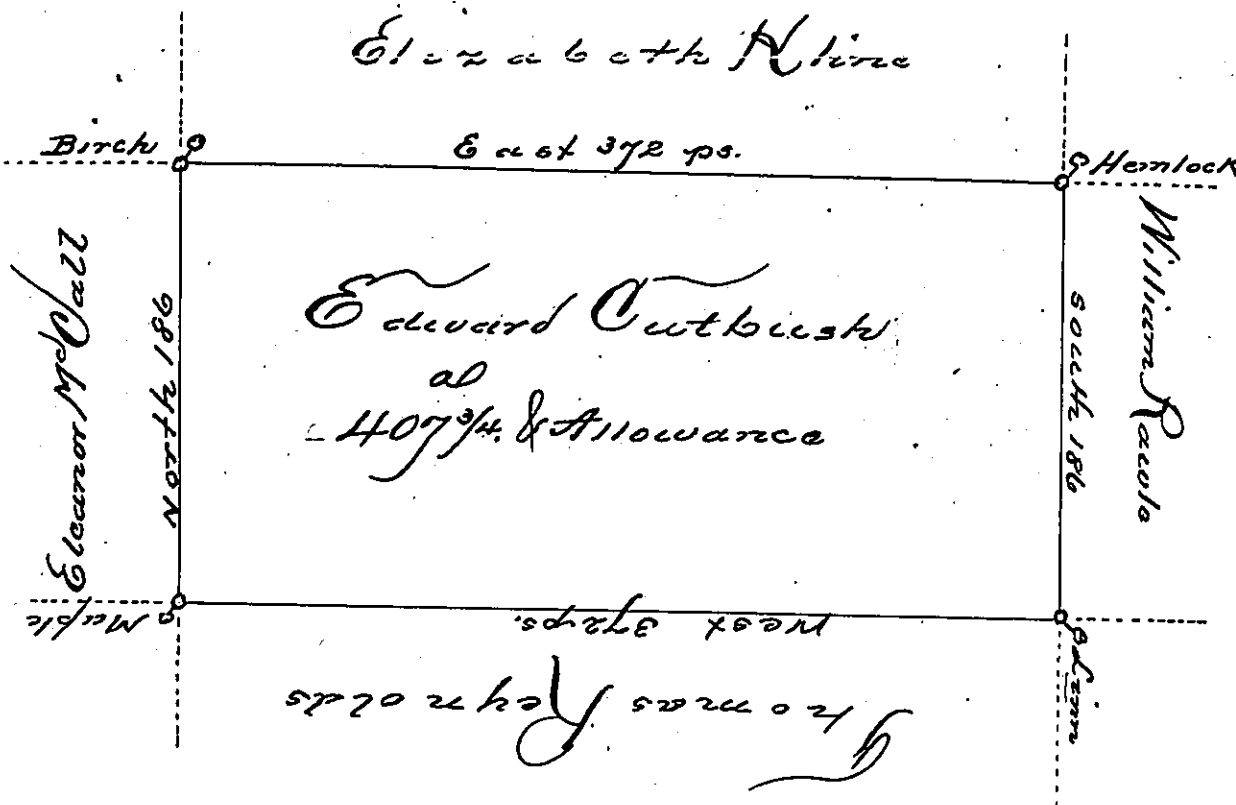 Elizabeth Kline
Birch
East 372 ps.
Hemlock
Eleanor McCall
North 186
Edward Cutbush
al
407 3/4. & Allowance
South 186
William Rawle
Maple
West 372 ps.
Linn
Thomas Reynolds